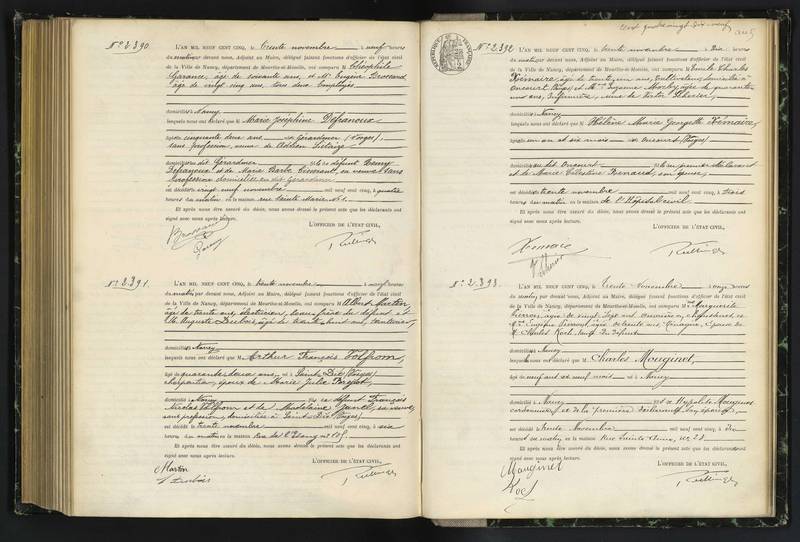 N° 2.390.
L'AN MIL NEUF CENT CINQ, le trente novembre à neuf heures
du matin par devant nous, Adjoint au Maire, délégué faisant fonctions d'officier de l'état civil
de la Ville de Nancy, département de Meurthe-et-Moselle, ont comparu M. Théophile
âgé de soixante ans, et Mr Eugène
âgé de vingt cinq ans, tous deux employés,
domiciliés à Nancy
lesquels nous ont déclaré que Marie Joséphine Defranoux
âgée cinquante deux ans, née Gérardmer (Vosges)
sans profession, veuve de
domiciliée au dit Gérardmer fille de défunt
Defranoux et de Marie Barbe sa veuve sans
profession domiciliée au dit Gérardmer
est décédée vingt neuf novembre mil neuf cent cinq, à quatre
heures du matin en la maison rue Sainte Marie N° 1.
Et après nous être assuré du décès, nous avons dressé le présent acte que les déclarants ont
signé avec nous après lecture.
L'OFFICIER DE L'ÉTAT CIVIL,
N° 2.391.
L'AN MIL NEUF CENT CINQ, le trente novembre à onze heures
du matin par devant nous, Adjoint au Maire, délégué faisant fonctions d'officier de l'état civil
de la Ville de Nancy, département de Meurthe-et-Moselle, ont comparu M. Albert Martin
âgé de trente ans, électricien, beau frère du défunt et
M. Auguste Dubois, âgé de trente huit ans,
domiciliés Nancy
lesquels nous ont déclaré que M. Arthur François Volfrom,
âgé quarante deux ans, né à Saint Dié (Vosges)
charpentier, époux de Marie Julie
domicilié à Nancy fils de défunt François
Nicolas Volfrom et de Madeleine sa veuve
sans profession, domiciliée à Saint Dié (Vosges)
est décédé le trente novembre mil neuf cent cinq, à six
heures du matin en la maison Rue de l'Etang n° 105.
Et après nous être assuré du décès, nous avons dressé le présent acte que les déclarants ont
signé avec nous après lecture.
L'OFFICIER DE L'ÉTAT CIVIL,
Martin
Dubois
cent quatre vingt dix neuf
N° 2392
L'AN MIL NEUF CENT CINQ, le trente novembre à dix heures
du matin par devant nous, Adjoint au Maire, délégué faisant fonctions d'officier de l'état civil
de la Ville de Nancy, département de Meurthe-et-Moselle, ont comparu M. Emile Charles
Xémaire, âgé de trente un ans, cultivateur, domicilié à
Oncourt (Vosges) et Suzanne âgée de quarante
un ans, infirmière, de Victor
domiciliés Nancy
lesquels nous ont déclaré que Hélène Marie Georgette Xémaire,
âgée un an et six mois née Oncourt (Vosges)
domiciliée au dit Oncourt fille du premier déclarant
et de Marie Célestine Renaud, son épouse,
est décédée trente novembre mil neuf cent cinq, à trois
heures du matin, en la maison de l'Hôpital civil
Et après nous être assuré du décès, nous avons dressé le présent acte que les déclarants ont
signé avec nous après lecture.
L'OFFICIER DE L'ÉTAT CIVIL,
Xémaire
N° 2.393.
L'AN MIL NEUF CENT CINQ, le trente novembre à onze heures
du matin par devant nous, Adjoint au Maire, délégué faisant fonctions d'officier de l'état civil
de la Ville de Nancy, département de Meurthe-et-Moselle, ont comparu Marguerite
âgée de vingt sept ans
Eugénie âgée de trente ans épouse de
Charles Koch
domiciliés Nancy
lesquels nous ont déclaré que Charles Mouginet,
âgé de neuf ans et neuf mois né à Nancy
domicilié à Nancy fils de Hippolyte Mouginet
cordonnier et de la première déclarante son épouse,
est décédé le trente Novembre mil neuf cent cinq, à dix
heures du matin, en la maison Rue Sainte Anne, n° 23.
Et après nous être assuré du décès, nous avons dressé le présent acte que les déclarants ont
signé avec nous après lecture.
L'OFFICIER DE L'ÉTAT CIVIL,
Mouginet
Koch